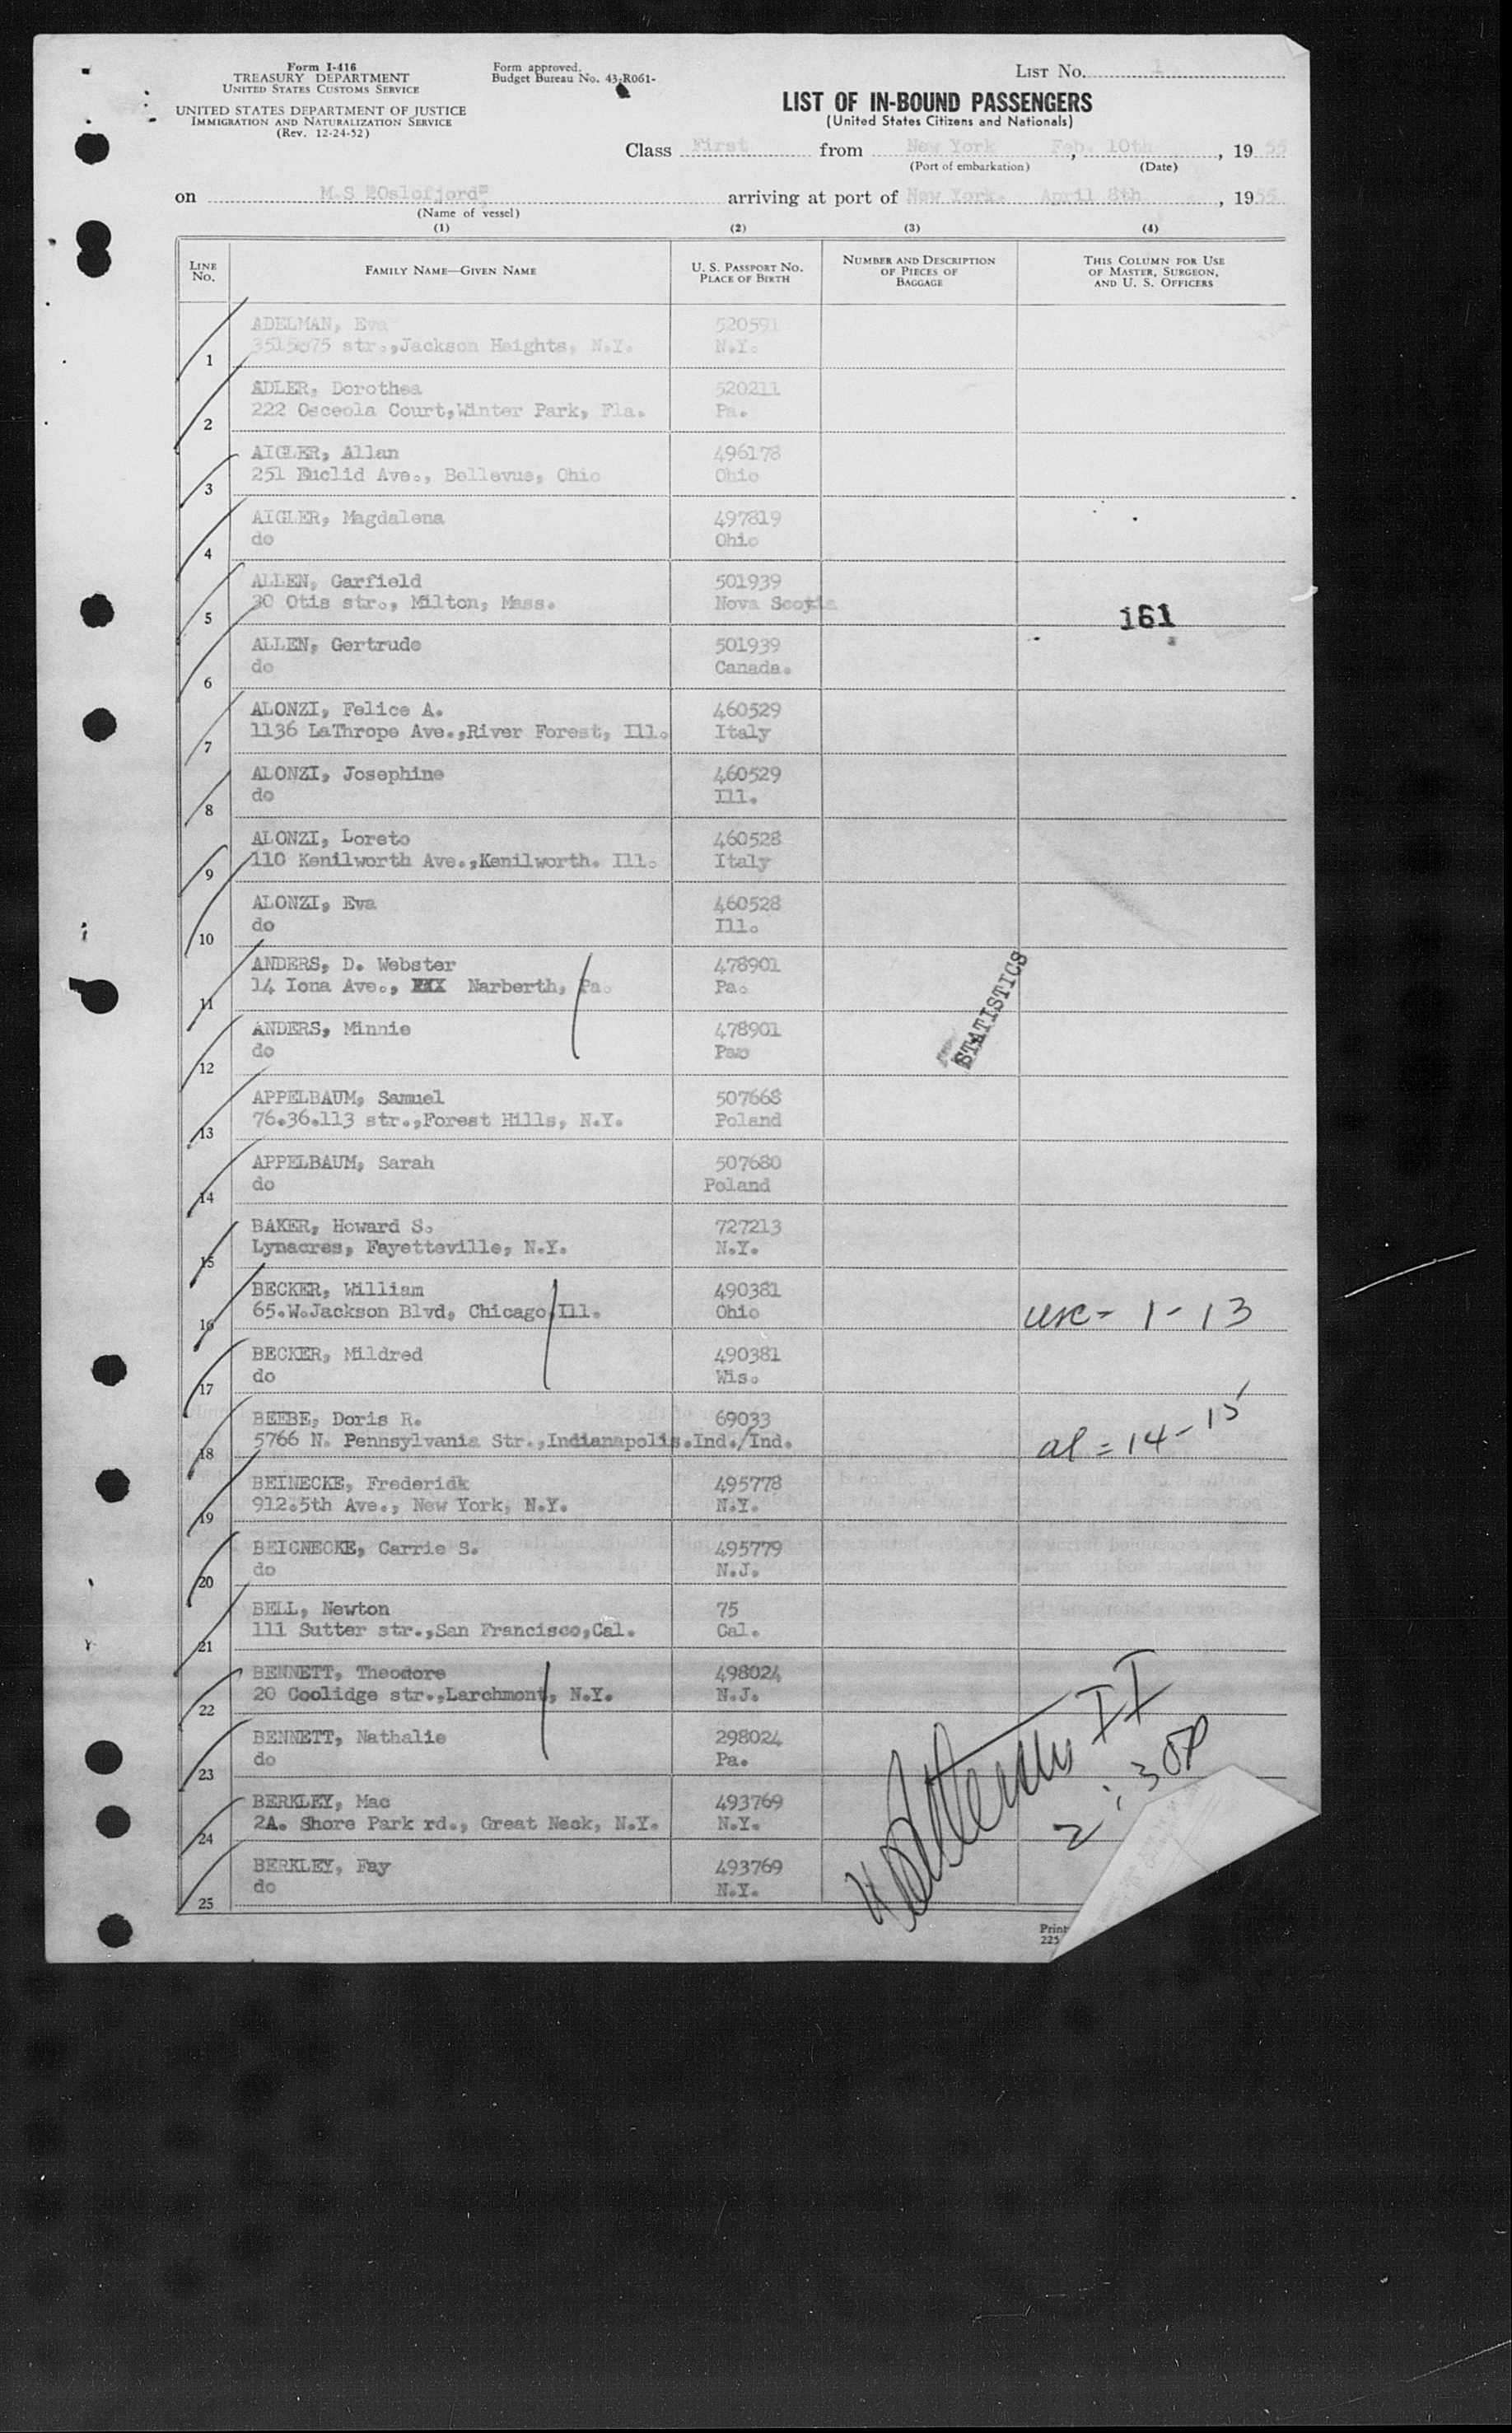 Form I-416
TREASURY DEPARTMENT
UNITED STATES CUSTOMS SERVICE
UNITED STATES DEPARTMENT OF JUSTICE
IMMIGRATION AND NATURALIZATION SERVICE
(Rev. 12-24-52)
Form approved.
Budget Bureau No. 43-R061-
LIST NO. 1
LIST OF IN-BOUND PASSENGERS
(United States Citizens and Nationals)
Class First from New York Feb. 10th, 1955
(Port of embarkation) (Date)
on M.S "Oslofjord" arriving at port of New York. April 8th, 1955
(Name of vessel)
(1) (2) (3) (4)
LINE NO. FAMILY NAME—GIVEN NAME U. S. PASSPORT NO. PLACE OF BIRTH NUMBER AND DESCRIPTION OF PIECES OF BAGGAGE THIS COLUMN FOR USE OF MASTER, SURGEON, AND U. S. OFFICERS
ADELMAN, Eva 520591
1 75 str.,Jackson Heights, N.Y. N.Y.
ADLER, Dorothea 520211
2 222 Osceola Court,Winter Park, Fla. Pa.
AIGLER, Allan 496178
3 251 Euclid Ave., Bellevue, Ohio Ohio
AIGLER, Magdalena 497819
4 do Ohio
ALLEN, Garfield 501939
5 30 Otis str., Milton, Mass. Nova Scotia
161
ALLEN, Gertrude 501939
6 do Canada.
ALONZI, Felice A. 460529
7 1136 LaThrope Ave.,River Forest, Ill. Italy
ALONZI, Josephine 460529
8 do Ill.
ALONZI, Loreto 460528
9 110 Kenilworth Ave.,Kenilworth. Ill. Italy
ALONZI, Eva 460528
10 do Ill.
ANDERS, D. Webster 478901
11 14 Iona Ave., XXX Narberth, Pa. Pa.
STATISTICS
ANDERS, Minnie 478901
12 do Pa.
APPELBAUM, Samuel 507668
13 76.36.113 str.,Forest Hills, N.Y. Poland
APPELBAUM, Sarah 507680
14 do Poland
BAKER, Howard S. 727213
15 Lynacres, Fayetteville, N.Y. N.Y.
BECKER, William 490381
16 65.W.Jackson Blvd, Chicago,Ill. Ohio usc- 1-13
BECKER, Mildred 490381
17 do Wis.
BEEBE, Doris R. 69033
18 5766 N. Pennsylvania Str.,Indianapolis.Ind./Ind. al = 14-15
BEINECKE, Frederick 495778
19 912.5th Ave., New York, N.Y. N.Y.
BEICNECKE, Carrie S. 495779
20 do N.J.
BELL, Newton 75
21 111 Sutter str.,San Francisco,Cal. Cal.
BENNETT, Theodore 498024
22 20 Coolidge str.,Larchmont, N.Y. N.J.
BENNETT, Nathalie 298024
23 do Pa.
II
2:30P
BERKLEY, Mac 493769
24 2A. Shore Park rd., Great Neck, N.Y. N.Y.
BERKLEY, Fay 493769
25 do N.Y.
Print
225